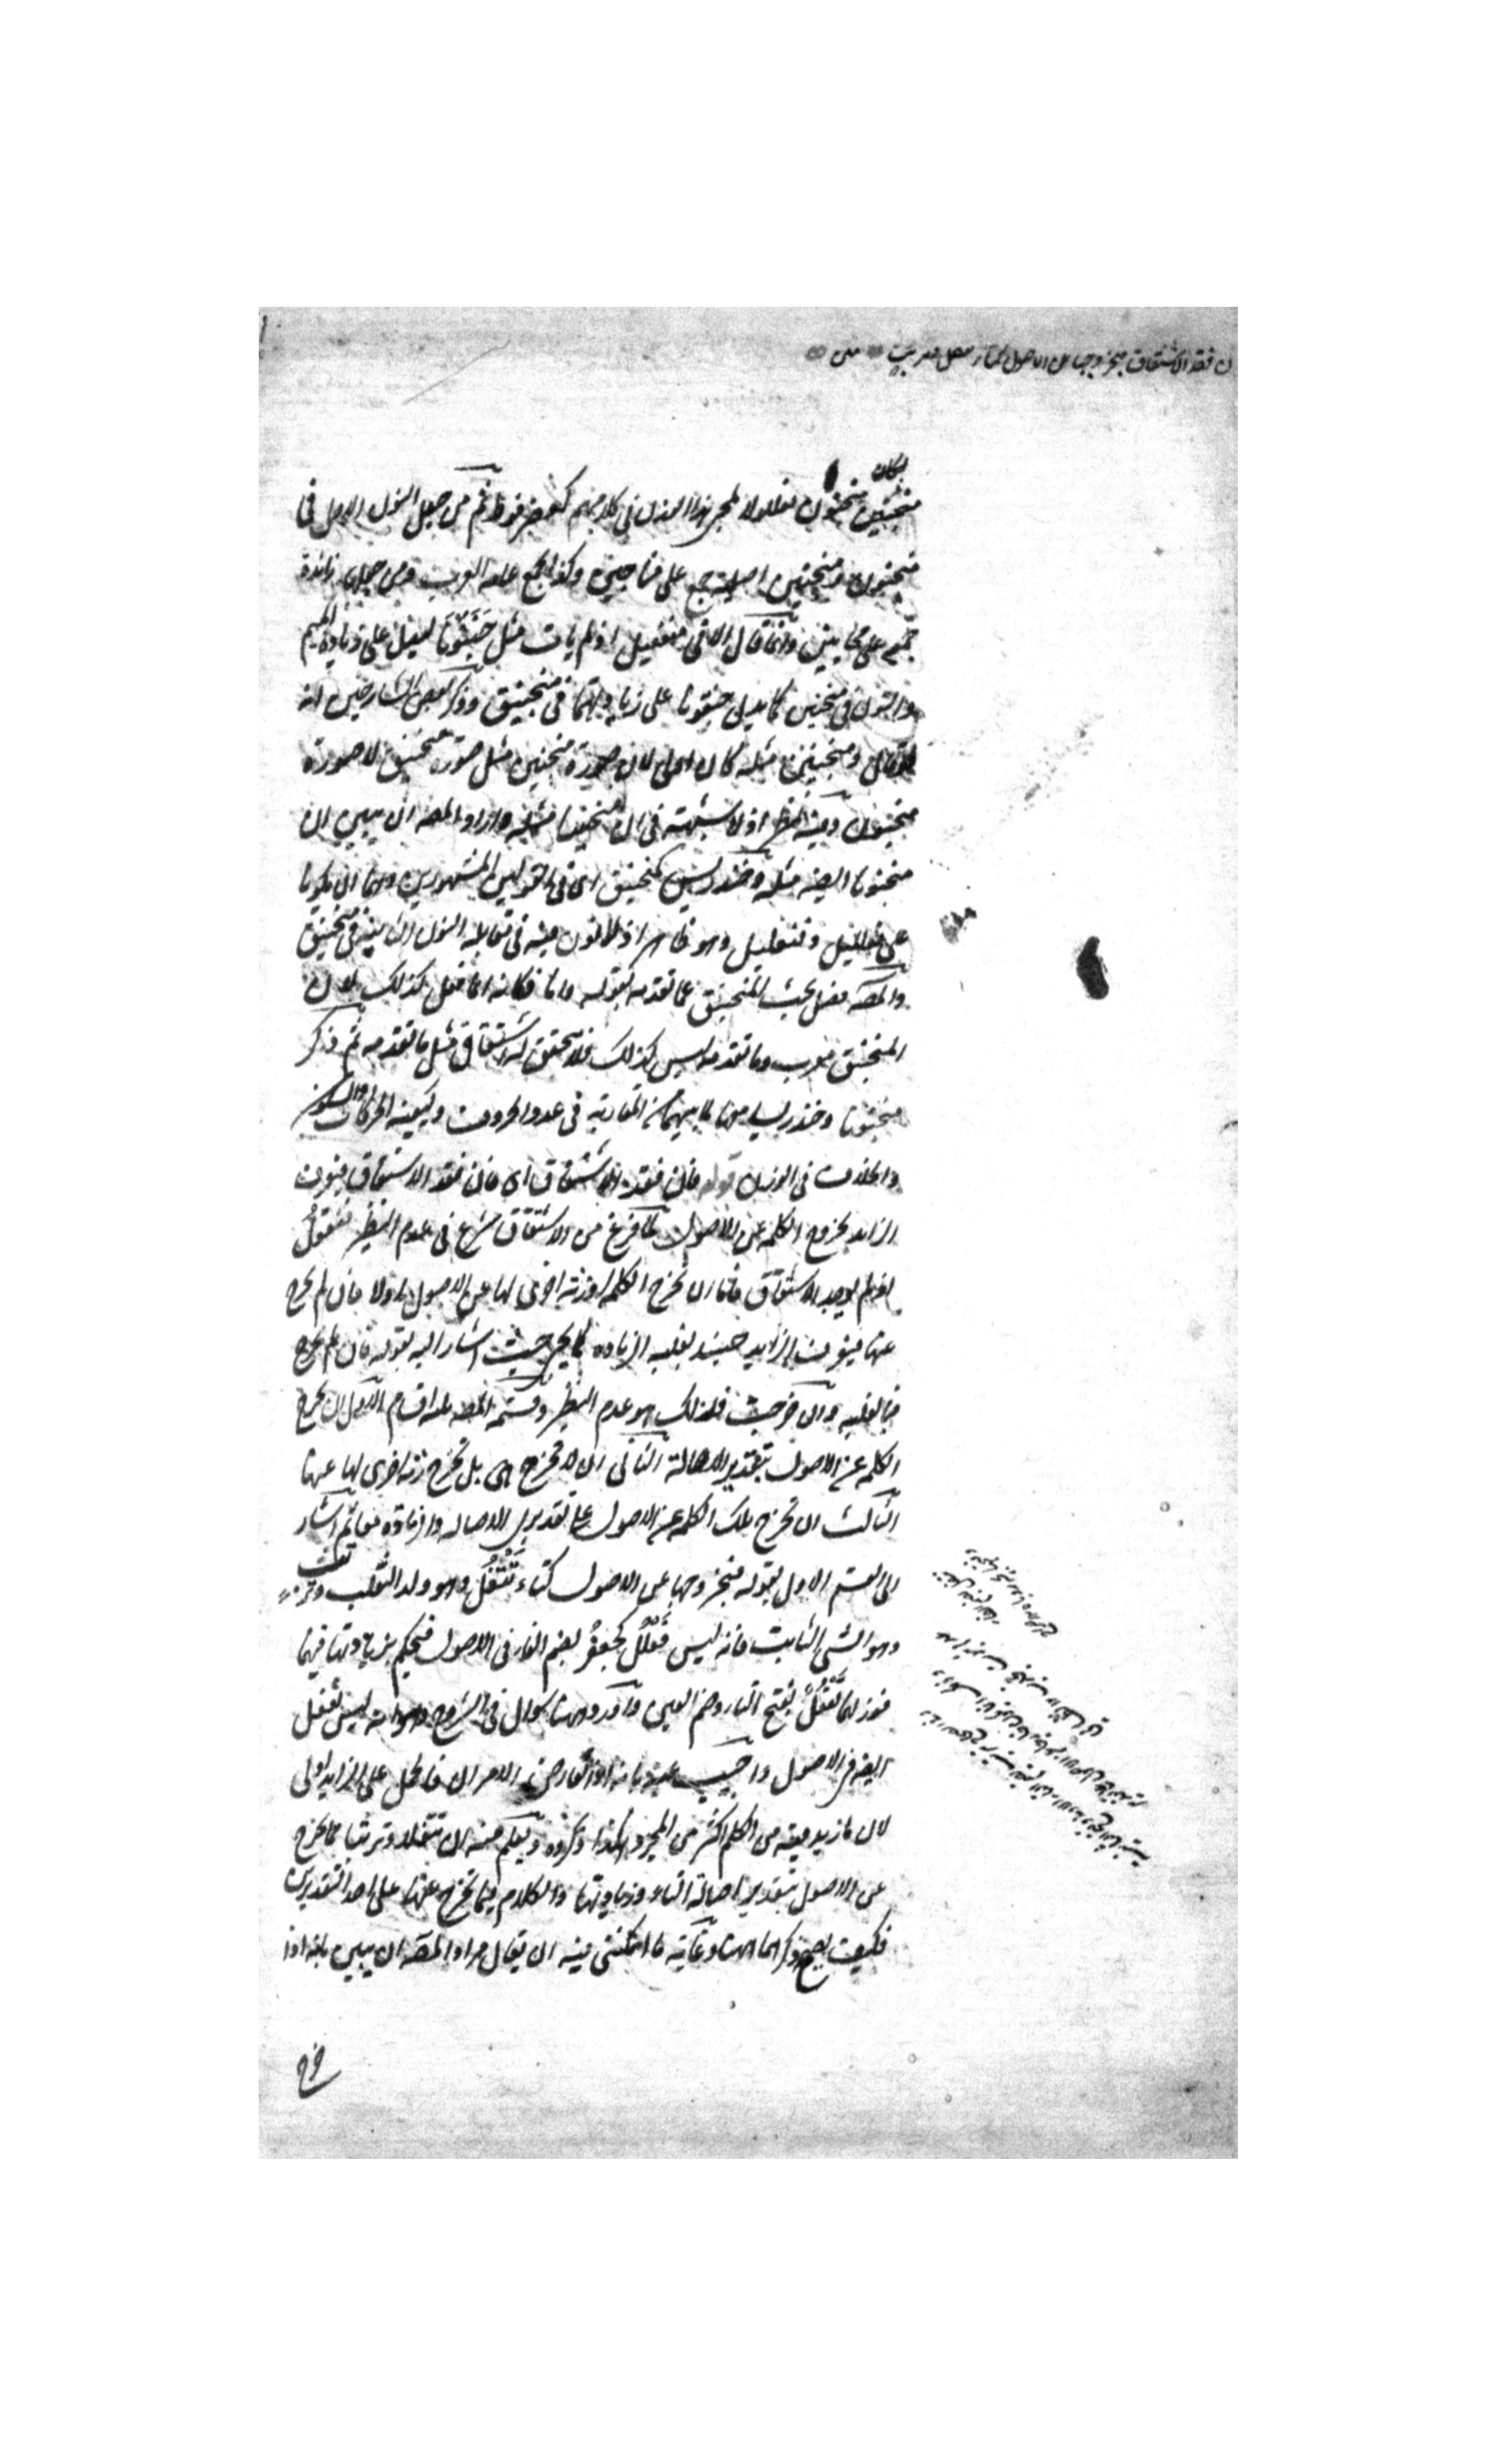 ن فقد الاشتقاق فبخروجها عن الاصول كتاء تتفل وترتب متن
لكان
منجنين منجنون فعللولا لمجئ هذا الوزن في كلامهم كعضرفوط ثم من جعل النون الاول في
منجنون ومنجنين اصلية جمع على مناجين وكذا يجمع عامة العرب ومن جعلها زائدة
جمع على مجانين وانما قال الا في منفعيل اذ لم يات مثل جنقونا ليدل على زيادة الميم
والنون في منجنين كما يدل جنقونا على زيادتهما في منجنيق وذكر بعض الشارحين انه
لو قال ومنجنين مثله كان اولى لان صورة منجنين مثل صورة منجنيق لا صورة
منجنون وفيه نظر اذ لا شبهة في ان منجنينا مثله واراد المصنف ان يبين ان
منجنونا ايضا مثله وخندريس كمنجنيق اي في القولين المشهورين وهما ان يكونا
على فعلليل وفنعليل وهو ظاهر اذ لا نون فيه في مقابلة النون الثانية في منجنيق
والمصنف فصل بحث المنجنيق عما تقدمه بقوله واما فكانه انما فعل كذلك لان
المنجنيق معرب وما تقدمه ليس كذلك فلا يتحقق له اشتقاق مثل ما تقدمه ثم ذكر
منجنونا وخندريسا معه لما بينهما من المقاربة في عدد الحروف وكيفية الحركات والسكون
والخلاف في الوزن قوله فان فقد الاشتقاق اي فان فقد الاشتقاق فيعرف
الزايد بخروج الكلمة عن الاصول لما فرغ من الاشتقاق شرع في عدم النظير فنقول
اذا لم يوجد الاشتقاق فاما ان تخرج الكلمة او زنة اخرى لها عن الاصول او لا فان لم تخرج
عنها فيعرف الزايد حينئذ بغلبة الزيادة كما يجئ حيث اشار اليه بقوله فان لم تخرج
فبالغلبة وان خرجت فذلك هو عدم النظير وقسمه المصنف ثلثة اقسام الاول ان تخرج
الكلمة عن الاصول بتقدير الاصالة الثاني ان لا تخرج هي بل تخرج زنة اخرى لها عنها
الثالث ان تخرج تلك الكلمة عن الاصول على تقديري الاصالة والزيادة معا ثم اشار
الى القسم الاول بقوله فبخروجها عن الاصول كتاء تتفل وهو ولد الثعلب وترتب
وهو الشئ الثابت فانه ليس فعلل كجعفر بضم الفاء في الاصول فنحكم بزيادتها فيهما
فوزنهما تفعل بفتح التاء وضم العين واورد ههنا سوال في الشروح وهو انه ليس تفعل
ايضا في الاصول واجيب عنه بانه اذا تعارض الامران فالحمل على الزايد اولى
لان ما زيد فيه من الكلم اكثر من المجرد هكذا ذكروه ويعلم منه ان تتفلا وترتبا مما يخرج
عن الاصول بتقدير اصالة التاء وزيادتها والكلام فيما تخرج عنها على احد التقديرين
فكيف يصح ذكرهما ههنا وغاية ما امكنني فيه ان يقال مراد المصنف ان يبين بانه اذا
خرج